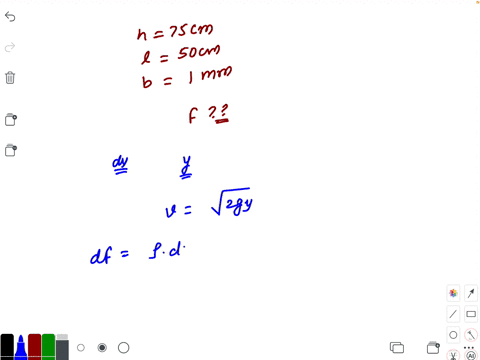 h = 75 cm
l = 50 cm
b = 1 mm
f ??
dy y
v = √2gy
df = ρ.d.